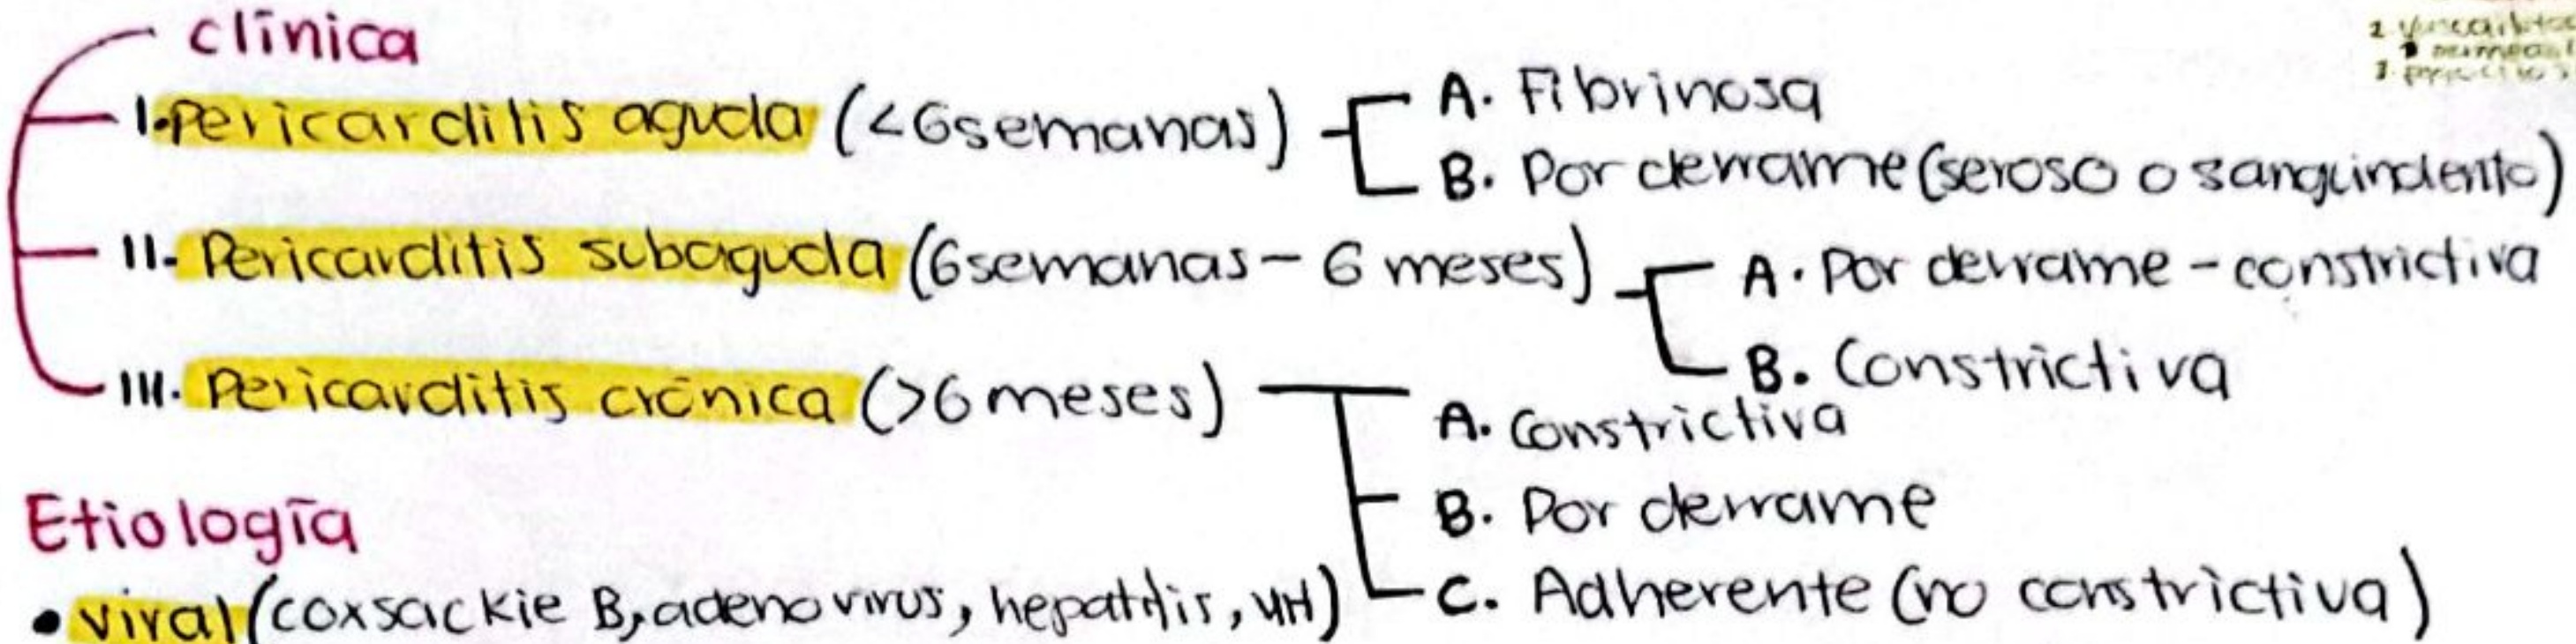 clínica
I. Pericarditis aguda (<6 semanas)
A. Fibrinosa
B. Por derrame (seroso o sanguindento)
II. Pericarditis subaguda (6 semanas - 6 meses)
A. Por derrame - constrictiva
B. Constrictiva
III. Pericarditis crónica (>6 meses)
A. Constrictiva
B. Por derrame
C. Adherente (no constrictiva)
Etiología
• viral (coxsackie B, adenovirus, hepatitis,